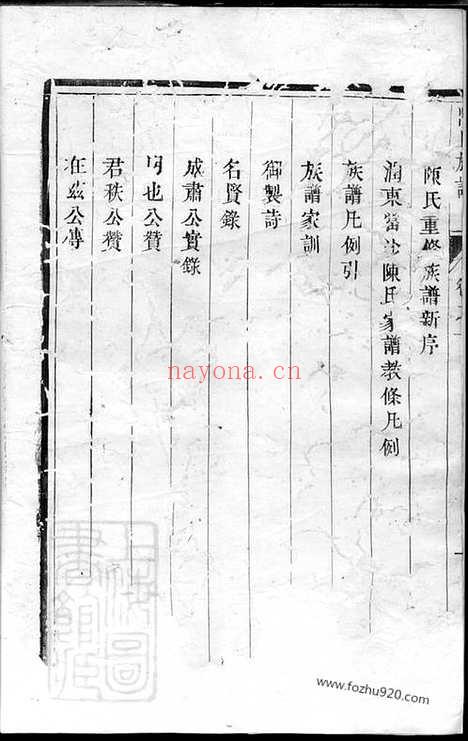 陳氏重修族譜新序
潤東當沙陳氏家譜教條凡例
族譜凡例引
族譜家訓
御製詩
名賢錄
成肅公實錄
明也公贊
君秩公贊
在茲公傳
nayona.cn
www.fozhu920.com